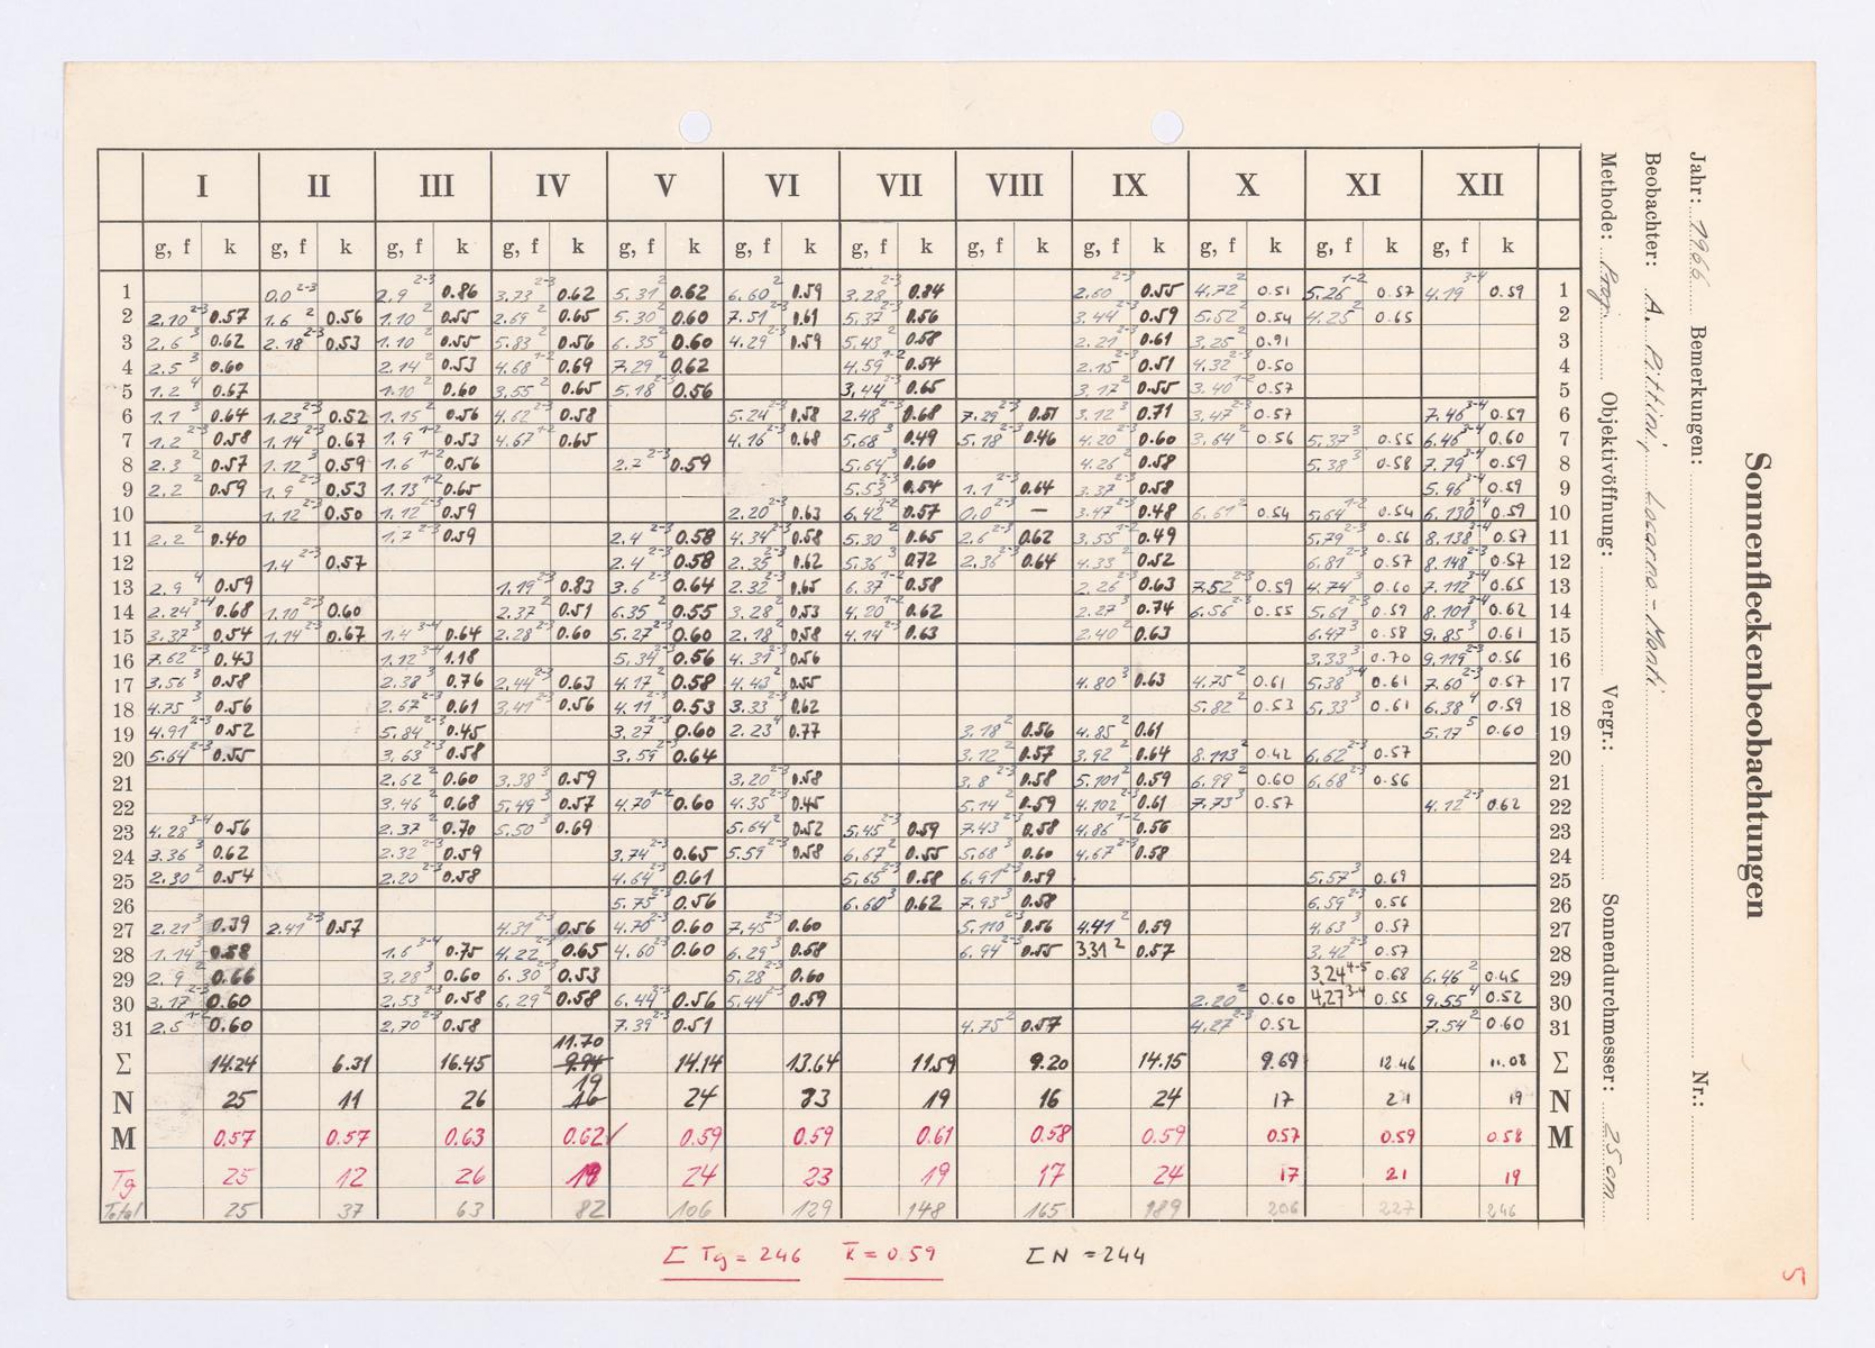 Sonnenfleckenbeobachtungen
Jahr: 1966 Bemerkungen: Nr.:
Beobachter: A. Pittini, Locarno-Monti
Methode: Proj. Objektivöffnung: Vergr.: Sonnendurchmesser: 25 cm
I II III IV V VI VII VIII IX X XI XII
g, f k g, f k g, f k g, f k g, f k g, f k g, f k g, f k g, f k g, f k g, f k g, f k
1 0.0 2-3 2.9 2-3 0.86 3.73 2-3 0.62 5.31 2 0.62 6.60 2 0.59 3.28 2-3 0.84 2.60 2-3 0.55 4.72 2 0.51 5.26 1-2 0.57 4.19 3-4 0.59 1
2 2.10 2-3 0.57 1.6 2 0.56 1.10 2 0.55 2.69 2 0.65 5.30 2 0.60 7.51 2-3 0.61 5.37 2 0.56 3.44 2-3 0.59 5.52 2 0.54 4.25 2 0.65 2
3 2.6 3 0.62 2.18 2-3 0.53 1.10 2 0.55 5.83 2 0.56 6.35 2 0.60 4.29 2-3 0.59 5.43 2 0.58 2.21 2-3 0.61 3.25 2 0.91 3
4 2.5 3 0.60 2.14 2 0.53 4.68 1-2 0.69 7.29 2 0.62 4.59 1-2 0.54 2.15 2-3 0.51 4.32 2-3 0.50 4
5 1.2 4 0.67 1.10 2 0.60 3.55 2 0.65 5.18 2-3 0.56 3.44 2-3 0.65 3.17 2-3 0.55 3.40 1-2 0.57 5
6 1.1 3 0.64 1.23 2-3 0.52 1.15 2 0.56 4.62 2-3 0.58 5.24 2-3 0.58 2.48 2-3 0.68 7.29 2-3 0.51 3.12 3 0.71 3.47 2-3 0.57 7.46 3-4 0.59 6
7 1.2 2-3 0.58 1.14 2-3 0.67 1.9 1-2 0.53 4.67 1-2 0.65 4.16 2-3 0.68 5.68 3 0.49 5.18 2-3 0.46 4.20 2-3 0.60 3.64 2 0.56 5.37 3 0.55 6.46 3-4 0.60 7
8 2.3 2 0.57 1.12 3 0.59 1.6 1-2 0.56 2.2 2-3 0.59 5.64 3 0.60 4.26 2 0.58 5.38 3 0.58 7.79 3-4 0.59 8
9 2.2 2 0.59 1.9 2-3 0.53 1.13 1-2 0.65 5.53 2-3 0.54 1.1 2-3 0.64 3.37 2-3 0.58 5.96 3-4 0.59 9
10 1.12 2-3 0.50 1.12 2-3 0.59 2.20 2-3 0.63 6.42 1-2 0.57 0.0 2-3 — 3.47 2-3 0.48 6.61 2 0.54 5.64 1-2 0.54 6.130 3-4 0.59 10
11 2.2 2 0.40 1.7 2-3 0.59 2.4 2-3 0.58 4.34 2-3 0.58 5.30 2 0.65 2.6 2-3 0.62 3.55 1-2 0.49 5.79 2-3 0.56 8.138 3-4 0.57 11
12 1.4 2-3 0.57 2.4 2 0.58 2.35 2-3 0.62 5.36 2 0.72 2.36 2-3 0.64 4.33 2-3 0.52 6.81 2-3 0.57 8.148 3-4 0.57 12
13 2.9 4 0.59 1.19 2-3 0.83 3.6 2-3 0.64 2.32 2-3 0.65 6.37 1-2 0.58 2.26 2-3 0.63 7.52 2-3 0.59 4.74 3 0.60 7.112 3-4 0.65 13
14 2.24 3-4 0.68 1.10 2-3 0.60 2.37 2 0.51 6.35 2 0.55 3.28 2 0.53 4.20 1-2 0.62 2.27 3 0.74 6.56 2-3 0.55 5.61 2-3 0.59 8.101 3-4 0.62 14
15 3.37 3 0.54 1.14 2-3 0.67 1.4 3-4 0.64 2.28 2-3 0.60 5.27 2-3 0.60 2.18 2 0.58 4.14 2-3 0.63 2.40 2 0.63 6.47 3 0.58 9.85 3 0.61 15
16 7.62 2-3 0.43 1.12 3-4 1.18 5.34 2-3 0.56 4.31 2-3 0.56 3.33 3 0.70 9.119 2-3 0.56 16
17 3.56 3 0.58 2.38 3 0.76 2.44 2-3 0.63 4.17 2 0.58 4.43 2 0.55 4.80 3 0.63 4.75 2 0.61 5.38 3-4 0.61 7.60 2-3 0.57 17
18 4.75 3 0.56 2.67 2-3 0.61 3.41 2-3 0.56 4.11 2-3 0.53 3.33 2 0.62 5.82 2 0.53 5.33 3 0.61 6.38 4 0.59 18
19 4.91 2-3 0.52 5.84 2-3 0.45 3.27 2 0.60 2.23 4 0.77 3.18 2 0.56 4.85 2 0.61 5.17 5 0.60 19
20 5.64 2-3 0.55 3.63 2-3 0.58 3.59 2-3 0.64 3.12 2-3 0.57 3.92 2 0.64 8.113 2 0.42 6.62 2-3 0.57 20
21 2.62 2 0.60 3.38 3 0.59 3.20 2-3 0.58 3.8 2-3 0.58 5.101 2 0.59 6.99 2 0.60 6.68 2-3 0.56 21
22 3.46 2 0.68 5.49 3 0.57 4.70 1-2 0.60 4.35 2-3 0.45 5.14 2 0.59 4.102 2-3 0.61 7.73 3 0.57 4.12 2-3 0.62 22
23 4.28 3-4 0.56 2.37 2 0.70 5.50 3 0.69 5.64 2 0.52 5.45 2-3 0.59 7.43 2-3 0.58 4.86 1-2 0.56 23
24 3.36 3 0.62 2.32 2-3 0.59 3.74 2-3 0.65 5.59 2-3 0.58 6.67 2 0.55 5.68 3 0.60 4.67 2-3 0.58 24
25 2.30 2 0.54 2.20 2-3 0.58 4.64 2-3 0.61 5.65 2-3 0.58 6.91 2-3 0.59 5.57 3 0.69 25
26 5.75 2-3 0.56 6.60 3 0.62 7.93 3 0.58 6.59 2-3 0.56 26
27 2.21 3 0.39 2.41 2-3 0.57 4.31 2-3 0.56 4.70 2 0.60 7.45 2-3 0.60 5.110 2-3 0.56 4.41 2 0.59 4.63 3 0.57 27
28 1.14 3 0.58 1.6 3-4 0.75 4.22 2-3 0.65 4.60 2-3 0.60 6.29 3 0.58 6.94 2-3 0.55 3.31 2 0.57 3.42 2-3 0.57 28
29 2.9 2 0.66 3.28 3 0.60 6.30 2-3 0.53 5.28 2-3 0.60 3.24 4-5 0.68 6.46 2 0.45 29
30 3.17 2-3 0.60 2.53 2-3 0.58 6.29 2 0.58 6.44 2-3 0.56 5.44 2-3 0.59 2.20 2 0.60 4.27 3-4 0.55 9.55 4 0.52 30
31 2.5 1-2 0.60 2.70 2-3 0.58 7.39 2-3 0.51 4.75 2 0.57 4.27 2-3 0.52 7.54 2 0.60 31
11.70
Σ 14.24 6.31 16.45 9.94 14.14 13.64 11.59 9.20 14.15 9.69 12.46 11.08 Σ
19
N 25 11 26 16 24 23 19 16 24 17 21 19 N
M 0.57 0.57 0.63 0.62 0.59 0.59 0.61 0.58 0.59 0.57 0.59 0.58 M
Tg 25 12 26 19 24 23 19 17 24 17 21 19
Total 25 37 63 82 106 129 148 165 189 206 227 246
Σ Tg = 246 k̄ = 0.59 Σ N = 244
5